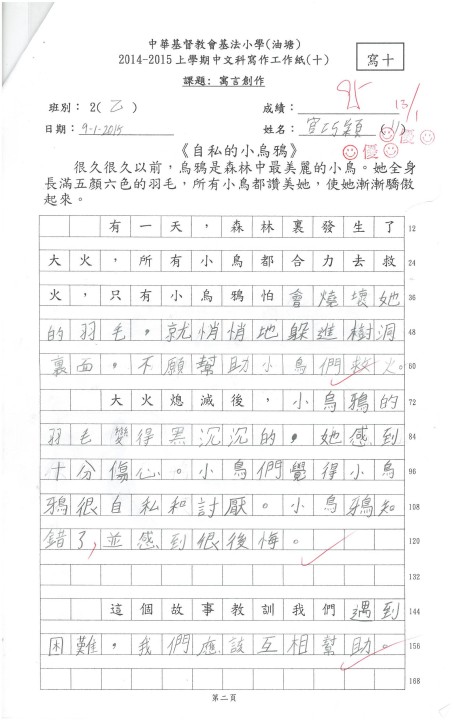 中華基督教會基法小學(油塘)
2014-2015上學期中文科寫作工作紙(十)
寫十
課題: 寓言創作
班別: 2(乙)
成績:
13/1
日期: 9-1-2015
姓名:
優 優
《自私的小烏鴉》
很久很久以前，烏鴉是森林中最美麗的小鳥。她全身
長滿五顏六色的羽毛，所有小鳥都讚美她，使她漸漸驕傲
起來。
有一天，森林裏發生了 12
大火，所有小鳥都合力去救 24
火，只有小烏鴉怕會燒壞她 36
的羽毛，就悄悄地躲進樹洞 48
裏面，不願幫助小鳥們救火。 60
大火熄滅後，小烏鴉的 72
羽毛變得黑沉沉的，她感到 84
十分傷心。小鳥們覺得小烏 96
鴉很自私和討厭。小烏鴉知 108
錯了,並感到很後悔。 120
132
這個故事教訓我們遇到 144
困難，我們應該互相幫助。 156
168
第二頁